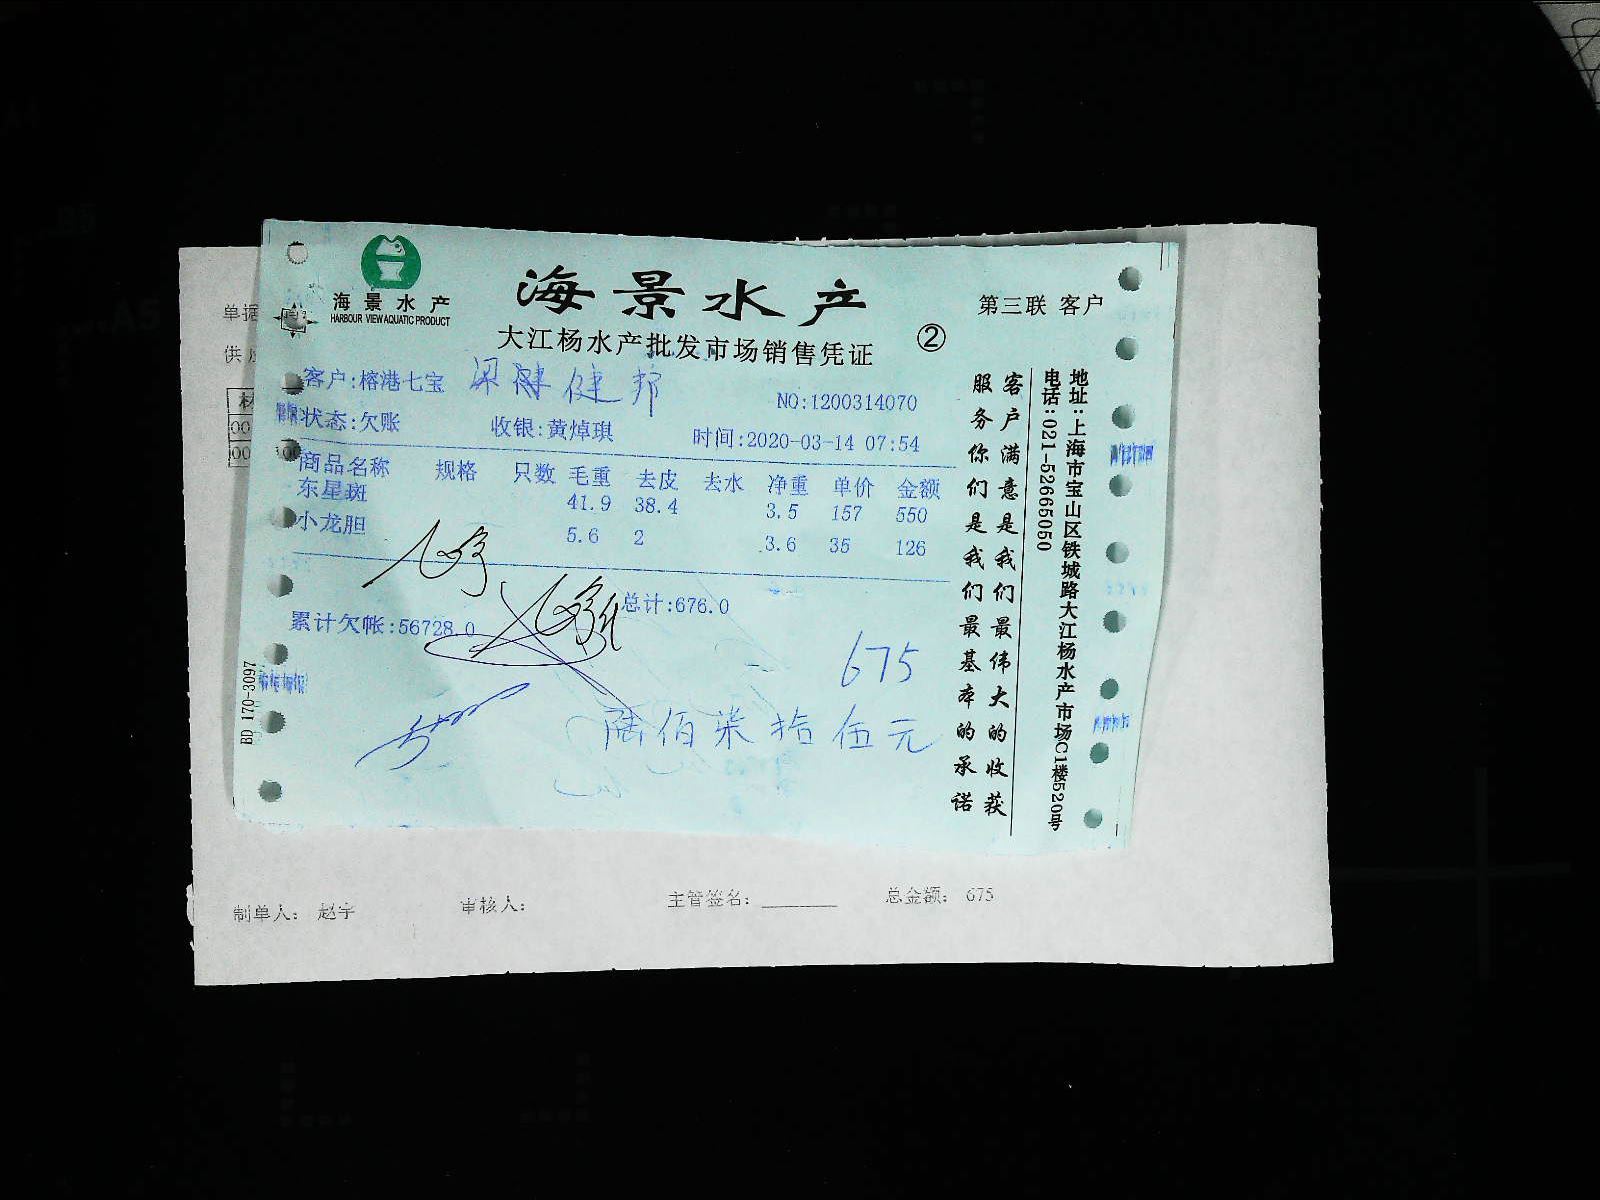 海景水产
HARBOUR VIEW AQUATIC PRODUCT
海景水产
大江杨水产批发市场销售凭证
②
第三联 客户
客户:榕港七宝 梁 健邦
NO:1200314070
状态:欠账 收银:黄焯琪 时间:2020-03-14 07:54
商品名称 规格 只数 毛重 去皮 去水 净重 单价 金额
东星斑 41.9 38.4 3.5 157 550
小龙胆 5.6 2 3.6 35 126
总计:676.0
累计欠帐:56728.0
675
陆佰柒拾伍元
BD 170-3097
客户满意是我们最伟大的收获
服务你们是我们最基本的承诺
地址:上海市宝山区铁城路大江杨水产市场C1楼520号
电话:021-52665050
单据
供
材
00
00
制单人: 赵宇 审核人: 主管签名: 总金额: 675